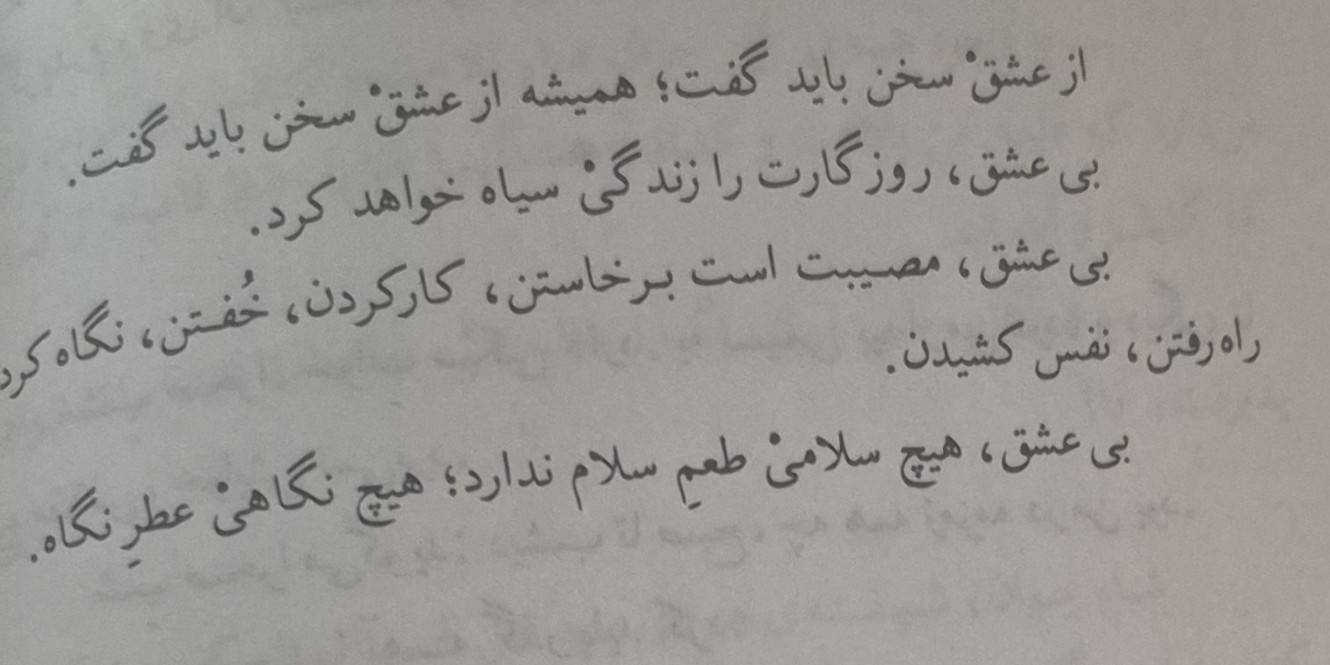 از عشقْ سخن باید گفت؛ همیشه از عشقْ سخن باید گفت.
بی عشق، روزگارت را زندگیْ سیاه خواهد کرد.
بی عشق، مصیبت است برخاستن، کارکردن، خُفتن، نگاه کرد
راه رفتن، نفس کشیدن.
بی عشق، هیچ سلامیْ طعمِ سلام ندارد؛ هیچ نگاهیْ عطرِ نگاه.